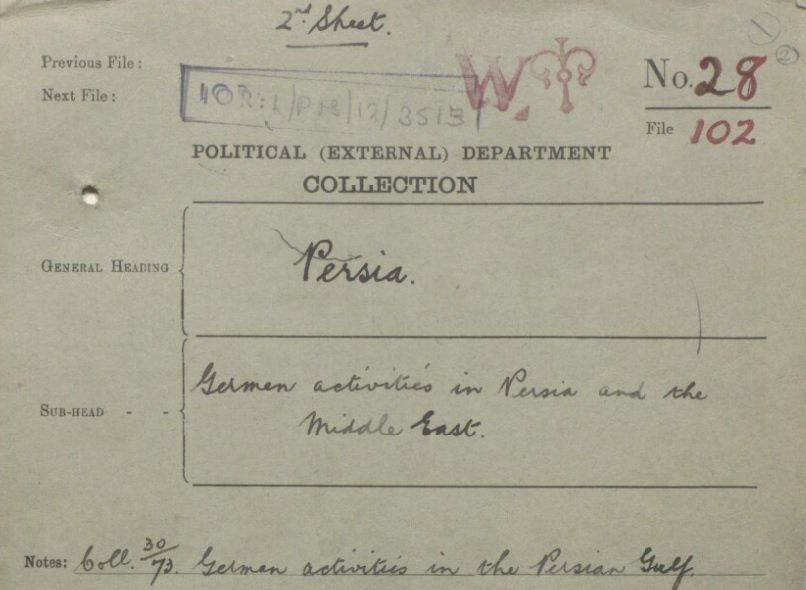 2nd Sheet.
1
2
Previous File :
Next File :
IOR: L/PS/12/3513
W.T
No. 28
File 102
POLITICAL (EXTERNAL) DEPARTMENT
COLLECTION
GENERAL HEADING
Persia.
SUB-HEAD - -
German activities in Persia and the
Middle East.
Notes: Coll. 30/73. German activities in the Persian Gulf.